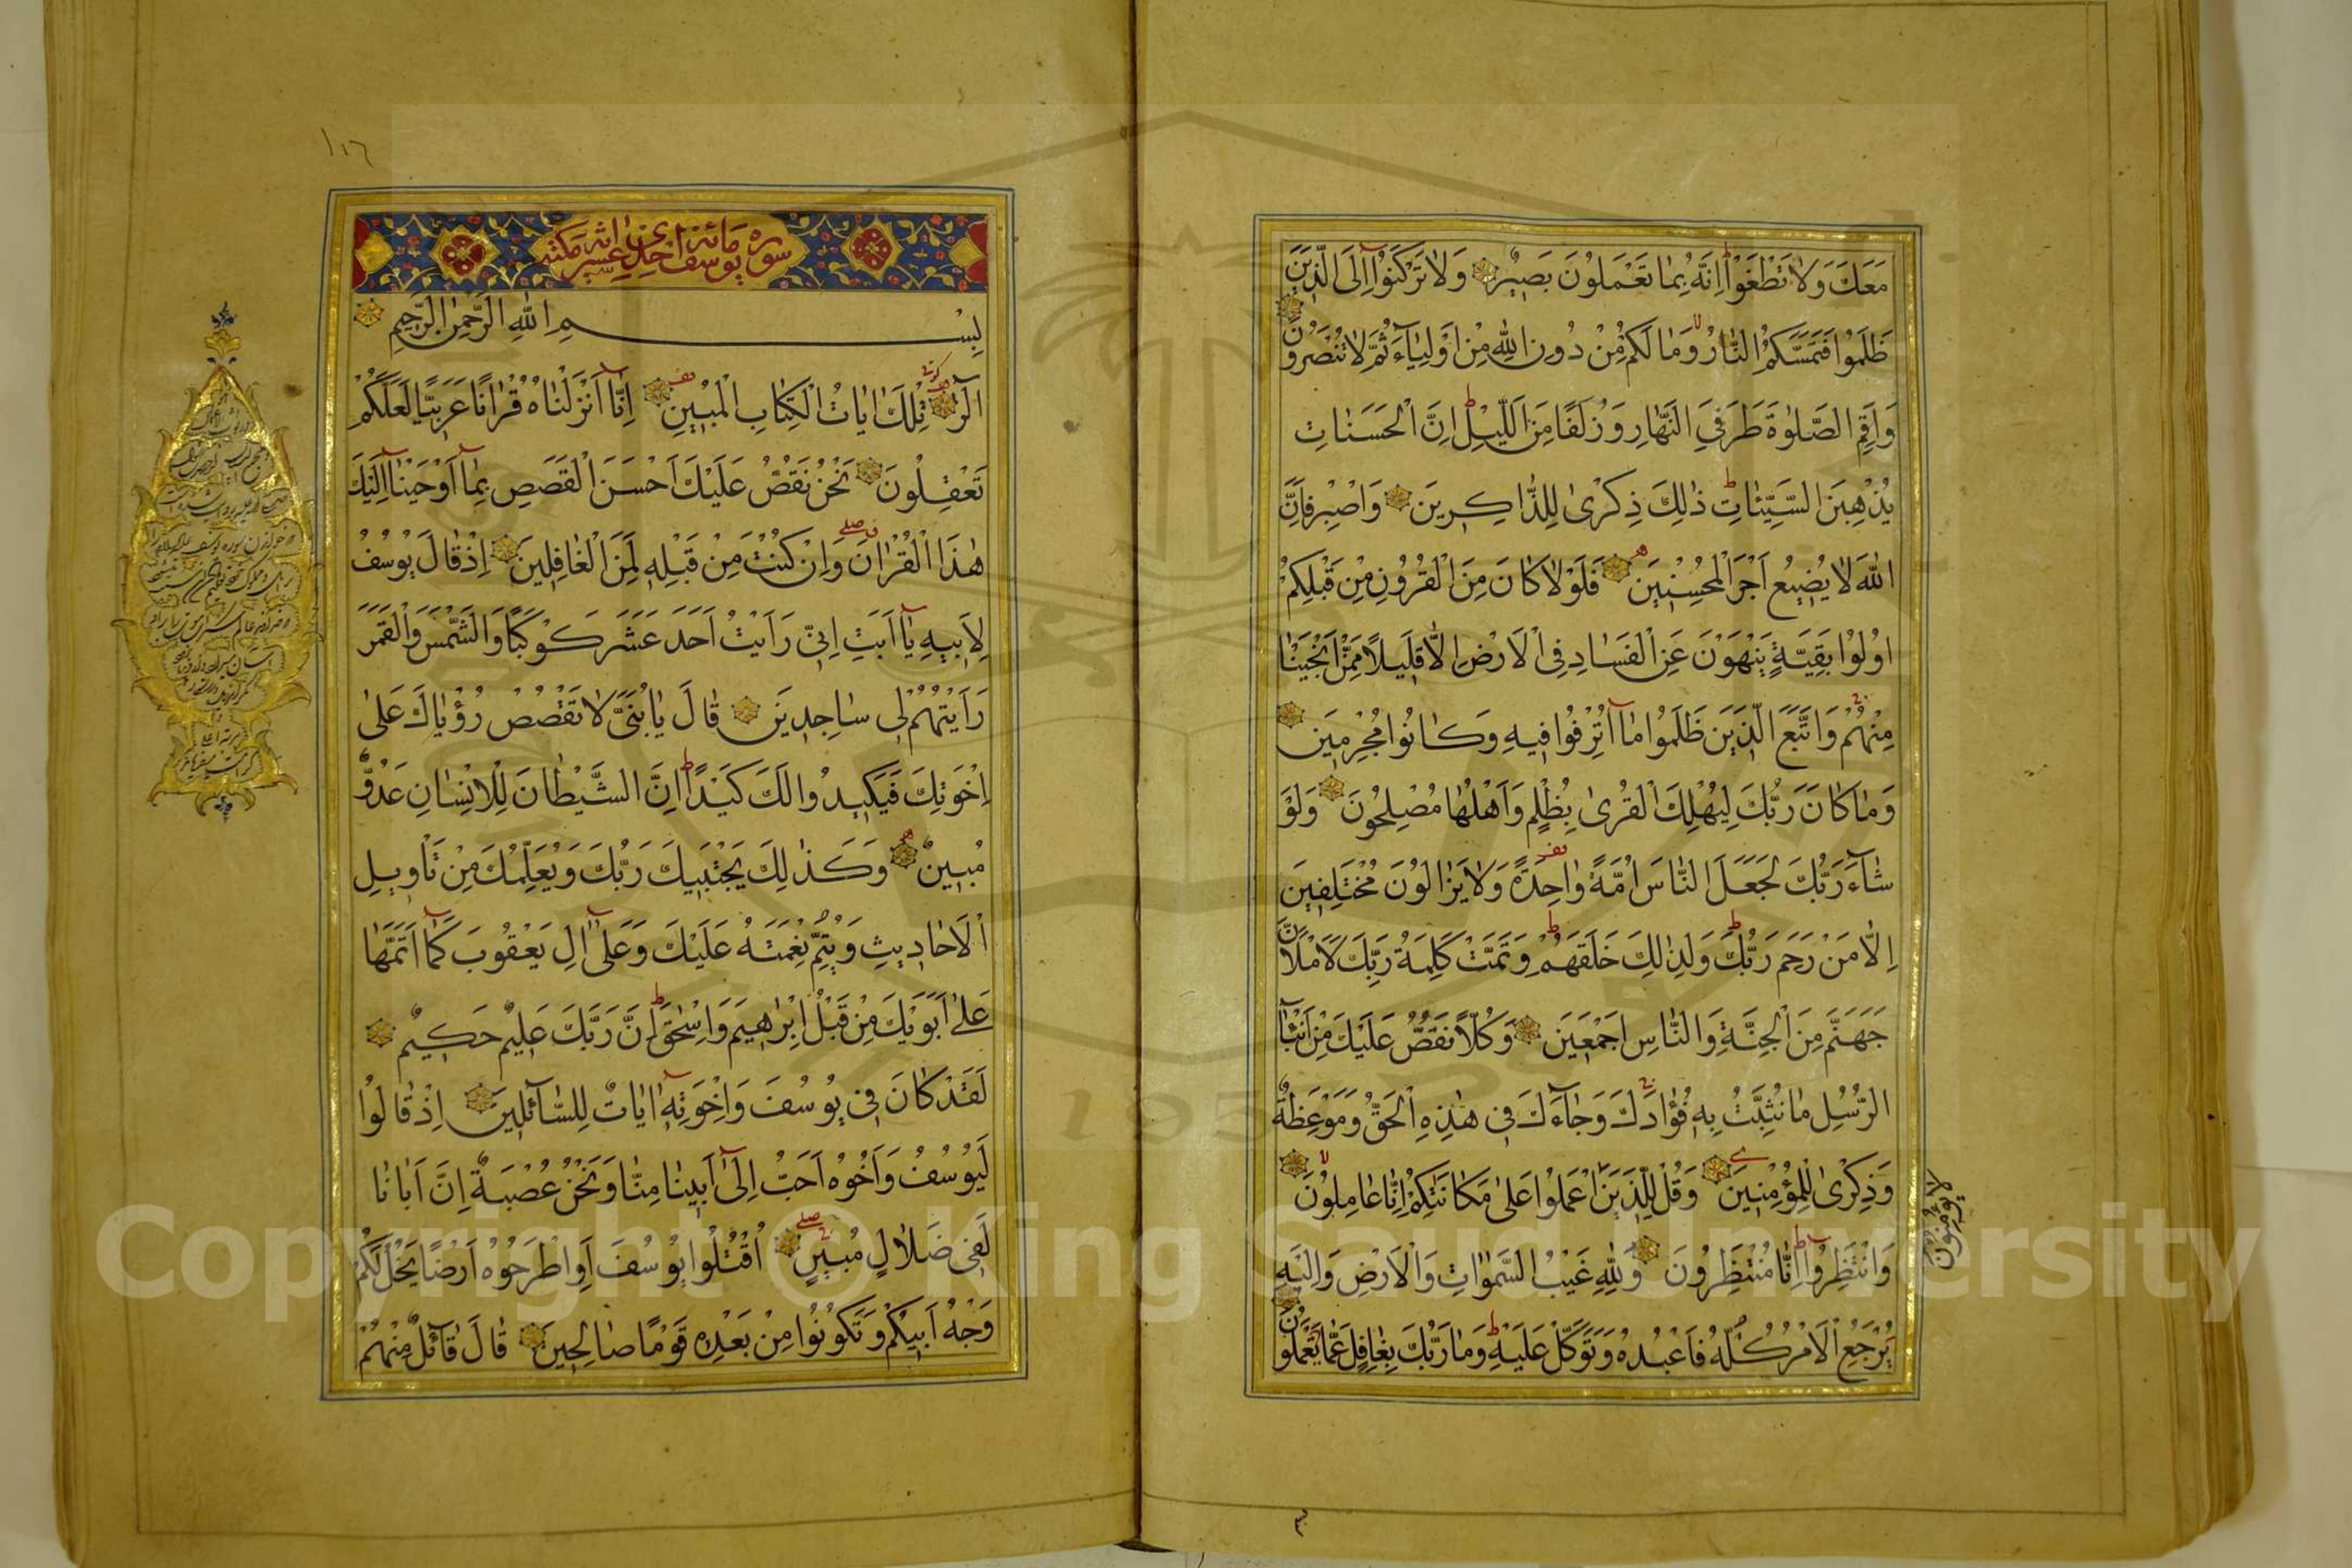 مَعَكَ وَلَا تَطْغَوْا إِنَّهُ بِمَا تَعْمَلُونَ بَصِيرٌ وَلَا تَرْكَنُوا إِلَى الَّذِينَ
ظَلَمُوا فَتَمَسَّكُمُ النَّارُ وَمَا لَكُمْ مِنْ دُونِ اللهِ مِنْ أَوْلِيَاءَ ثُمَّ لَا تُنْصَرُونَ
وَأَقِمِ الصَّلٰوةَ طَرَفَيِ النَّهَارِ وَزُلَفًا مِنَ اللَّيْلِ إِنَّ الْحَسَنَاتِ
يُذْهِبْنَ السَّيِّئَاتِ ذٰلِكَ ذِكْرٰى لِلذَّاكِرِينَ وَاصْبِرْ فَإِنَّ
اللهَ لَا يُضِيعُ أَجْرَ الْمُحْسِنِينَ فَلَوْلَا كَانَ مِنَ الْقُرُونِ مِنْ قَبْلِكُمْ
اُولُوا بَقِيَّةٍ يَنْهَوْنَ عَنِ الْفَسَادِ فِي الْأَرْضِ إِلَّا قَلِيلًا مِمَّنْ أَنْجَيْنَا
مِنْهُمْ وَاتَّبَعَ الَّذِينَ ظَلَمُوا مَا أُتْرِفُوا فِيهِ وَكَانُوا مُجْرِمِينَ
وَمَا كَانَ رَبُّكَ لِيُهْلِكَ الْقُرٰى بِظُلْمٍ وَأَهْلُهَا مُصْلِحُونَ وَلَوْ
شَاءَ رَبُّكَ لَجَعَلَ النَّاسَ أُمَّةً وَاحِدَةً وَلَا يَزَالُونَ مُخْتَلِفِينَ
إِلَّا مَنْ رَحِمَ رَبُّكَ وَلِذٰلِكَ خَلَقَهُمْ وَتَمَّتْ كَلِمَةُ رَبِّكَ لَأَمْلَأَنَّ
جَهَنَّمَ مِنَ الْجِنَّةِ وَالنَّاسِ أَجْمَعِينَ وَكُلًّا نَقُصُّ عَلَيْكَ مِنْ أَنْبَاءِ
الرُّسُلِ مَا نُثَبِّتُ بِهِ فُؤَادَكَ وَجَاءَكَ فِي هٰذِهِ الْحَقُّ وَمَوْعِظَةٌ
وَذِكْرٰى لِلْمُؤْمِنِينَ وَقُلْ لِلَّذِينَ اعْمَلُوا عَلٰى مَكَانَتِكُمْ إِنَّا عَامِلُونَ
لَا يُؤْمِنُونَ
وَانْتَظِرُوا إِنَّا مُنْتَظِرُونَ وَلِلّٰهِ غَيْبُ السَّمٰوَاتِ وَالْأَرْضِ وَإِلَيْهِ
يُرْجَعُ الْأَمْرُ كُلُّهُ فَاعْبُدْهُ وَتَوَكَّلْ عَلَيْهِ وَمَا رَبُّكَ بِغَافِلٍ عَمَّا تَعْمَلُونَ
سورة يوسف مائة واحدى عشر اية مكية
بِسْمِ اللهِ الرَّحْمٰنِ الرَّحِيمِ
الٓرٰ تِلْكَ اٰيَاتُ الْكِتَابِ الْمُبِينِ إِنَّا أَنْزَلْنَاهُ قُرْاٰنًا عَرَبِيًّا لَعَلَّكُمْ
تَعْقِلُونَ نَحْنُ نَقُصُّ عَلَيْكَ أَحْسَنَ الْقَصَصِ بِمَا أَوْحَيْنَا إِلَيْكَ
هٰذَا الْقُرْاٰنَ وَإِنْ كُنْتَ مِنْ قَبْلِهِ لَمِنَ الْغَافِلِينَ إِذْ قَالَ يُوسُفُ
لِأَبِيهِ يَا أَبَتِ إِنِّي رَأَيْتُ أَحَدَ عَشَرَ كَوْكَبًا وَالشَّمْسَ وَالْقَمَرَ
رَأَيْتُهُمْ لِي سَاجِدِينَ قَالَ يَا بُنَيَّ لَا تَقْصُصْ رُؤْيَاكَ عَلٰى
إِخْوَتِكَ فَيَكِيدُوا لَكَ كَيْدًا إِنَّ الشَّيْطَانَ لِلْإِنْسَانِ عَدُوٌّ
مُبِينٌ وَكَذٰلِكَ يَجْتَبِيكَ رَبُّكَ وَيُعَلِّمُكَ مِنْ تَأْوِيلِ
الْأَحَادِيثِ وَيُتِمُّ نِعْمَتَهُ عَلَيْكَ وَعَلٰى اٰلِ يَعْقُوبَ كَمَا أَتَمَّهَا
عَلٰى أَبَوَيْكَ مِنْ قَبْلُ إِبْرٰهِيمَ وَإِسْحٰقَ إِنَّ رَبَّكَ عَلِيمٌ حَكِيمٌ
لَقَدْ كَانَ فِي يُوسُفَ وَإِخْوَتِهِ اٰيَاتٌ لِلسَّائِلِينَ إِذْ قَالُوا
لَيُوسُفُ وَأَخُوهُ أَحَبُّ إِلٰى أَبِينَا مِنَّا وَنَحْنُ عُصْبَةٌ إِنَّ أَبَانَا
لَفِي ضَلَالٍ مُبِينٍ اُقْتُلُوا يُوسُفَ أَوِ اطْرَحُوهُ أَرْضًا يَخْلُ لَكُمْ
وَجْهُ أَبِيكُمْ وَتَكُونُوا مِنْ بَعْدِهِ قَوْمًا صَالِحِينَ قَالَ قَائِلٌ مِنْهُمْ
Copyright © King Saud University